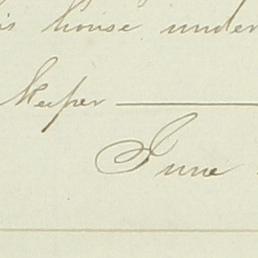 is house under
keeper —
June